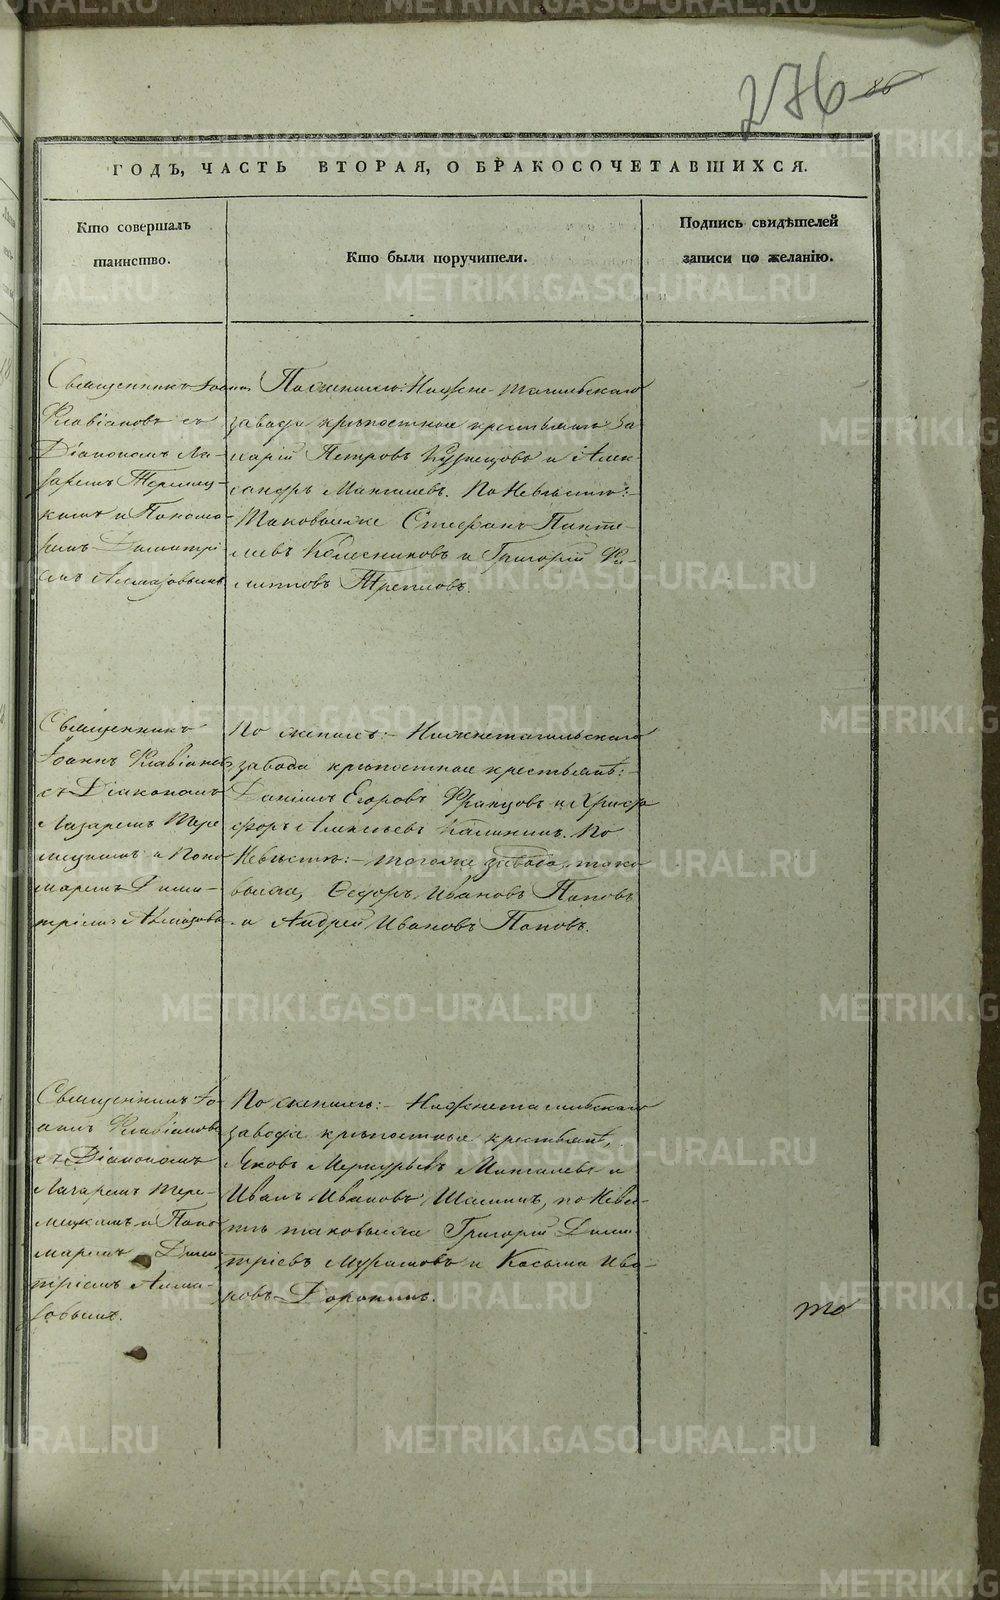 276
86
ГОДЪ, ЧАСТЬ ВТОРАЯ, О БРАКОСОЧЕТАВШИХСЯ.
Кто совершалъ
таинство.
Кто были поручители.
Подпись свидѣтелей
записи по желанію.
Священникъ Іоаннъ
Флавіановъ съ
Діакономъ Ла-
заремъ Терлец-
кимъ и Понома-
ремъ Димитрі-
емъ Алмазовымъ
По женихѣ: Нижне-тагильскаго
завода крѣпостные крестьяне За-
харій Петровъ Кузнецовъ и Алек-
сандръ По Невѣстѣ:-
Таковыеже Стефанъ Панте-
леевъ Колесниковъ и Григорій Фи-
липповъ
Священникъ
Іоаннъ Флавіановъ
съ Діакономъ
Лазаремъ Тер
лецкимъ и Поно-
маремъ Дими-
тріемъ Алмазовы
По женихѣ:- Нижнетагильскаго
завода крѣпостные крестьяне:-
Даніилъ Егоровъ Францовъ и Христо
форъ Алексѣевъ Калининъ. По
Невѣстѣ:- тогоже завода, тако
выеже, Ѳедоръ Ивановъ Поповъ
и Андрей Ивановъ Поповъ.
Священникъ Іо-
аннъ Флавіановъ
съ Діакономъ
Лазаремъ Тер-
лецкимъ и Поно
маремъ Дими
тріемъ Алма-
зовымъ.
По женихѣ:- Нижнетагильскаго
завода крѣпостные крестьяне,
Яковъ Меркурьевъ и
Иванъ Ивановъ по Невѣс-
тѣ таковыеже Григорій Дими-
тріевъ и Косьма
Доронинъ.
то
METRIKI.GASO-URAL.RU